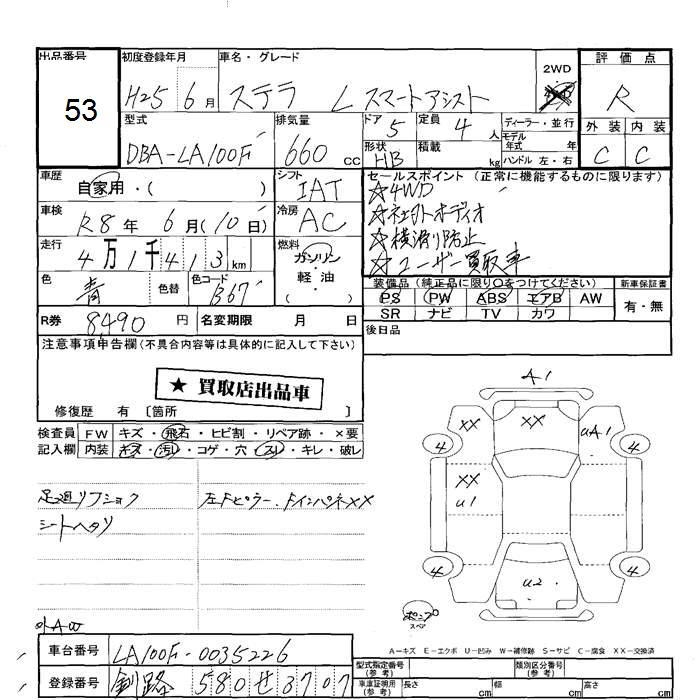 出品番号 初度登録年月 車名・グレード 2WD 4WD 評価点
53 H25 6月 ステラ L スマートアシスト R
型式 排気量 ドア 5 定員 4 人 ディーラー・並行 外装 内装
DBA-LA100F 660 cc 形状 HB 積載 kg モデル年式 年 ハンドル 左・右 C C
車歴 自家用・( ) シフト IAT セールスポイント (正常に機能するものに限ります)
☆4WD
車検 R8年 6月(10日) 冷房 AC ☆社外オーディオ
☆横滑り防止
走行 4万1千413km 燃料 ガソリン・軽油 ☆ユーザー買取車
色 青 色替 色コード B67 装備品 (純正品に限り○をつけてください) 新車保証書
PS PW ABS エアB AW 有・無
SR ナビ TV カワ
R券 8490円 名変期限 月 日 後日品
注意事項申告欄(不具合内容等は具体的に記入して下さい)
★ 買取店出品車
修復歴 有 〔箇所 〕
検査員記入欄 FW キズ・飛石・ヒビ割・リペア跡・×要
内装 キズ・汚れ・コゲ・穴・スレ・キレ・破レ
足廻リフショク 左Fピラー、FインパネXX
シートヘタリ
A1
XX XX uA1
4 4
XX
u1
4 4
u2
スペア
A-キズ E-エクボ U-凹み W-補修跡 S-サビ C-腐食 XX-交換済
車台番号 LA100F-0035226 型式指定番号(参考) 類別区分番号(参考)
登録番号 釧路 580 せ 3707 車庫証明用(参考) 長さ cm 幅 cm 高さ cm